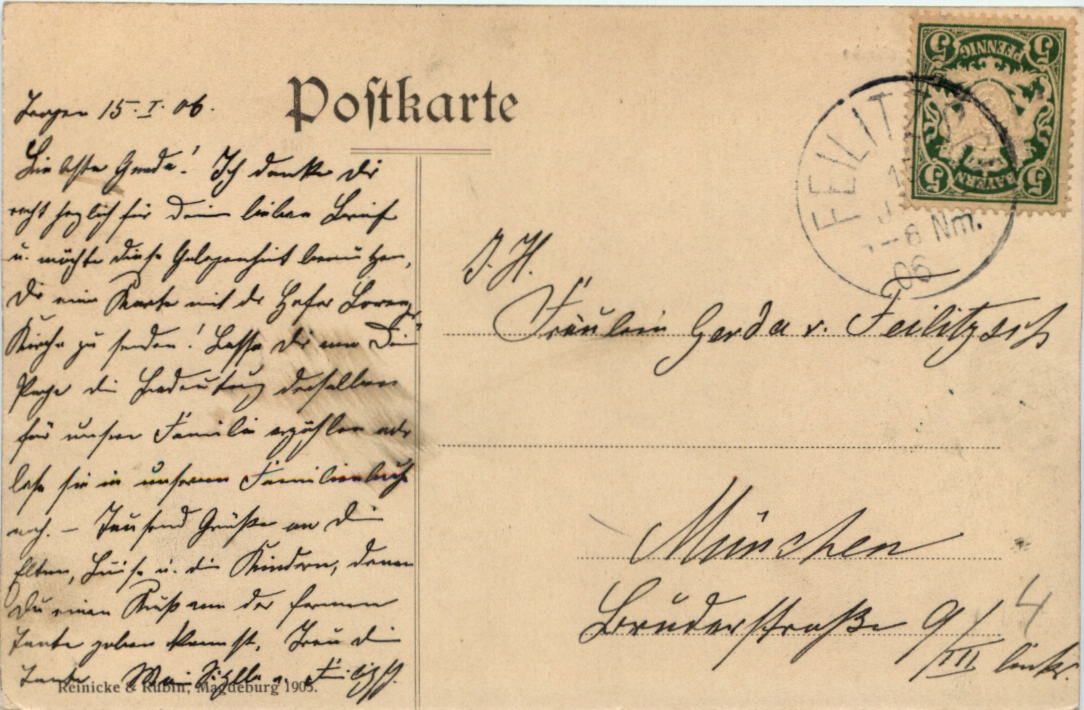 Postkarte
15. I. 06.
Liebste Gerda! Ich danke Dir
recht herzlich für Deinen lieben Brief
u. möchte diese Gelegenheit benutzen,
Dir eine Karte mit der Hofer Lorenz
Kirche zu senden! Lasse Dir von Deinem
Papa die Bedeutung derselben
für unsere Familie erzählen oder
lese sie in unserem Familienbuch
nach. – Tausend Grüße an die
Eltern, Luise u. die Kinder, denen
Du einen Kuß von der fernen
Tante geben kannst. Treu die
Tante Feilitzsch.
Reinicke & Rubin, Magdeburg 1905.
5 PFENNIG 5
5 BAYERN 5
FEILITZSCH
6 Nm.
06
I. H.
Fräulein Gerda v. Feilitzsch
München
Bruderstraße 9/III links.
4